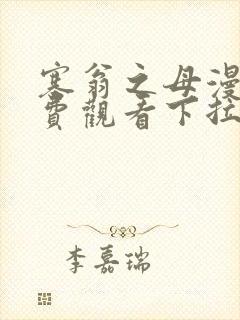 塞翁之母漫
費觀看下拉
李嘉瑞